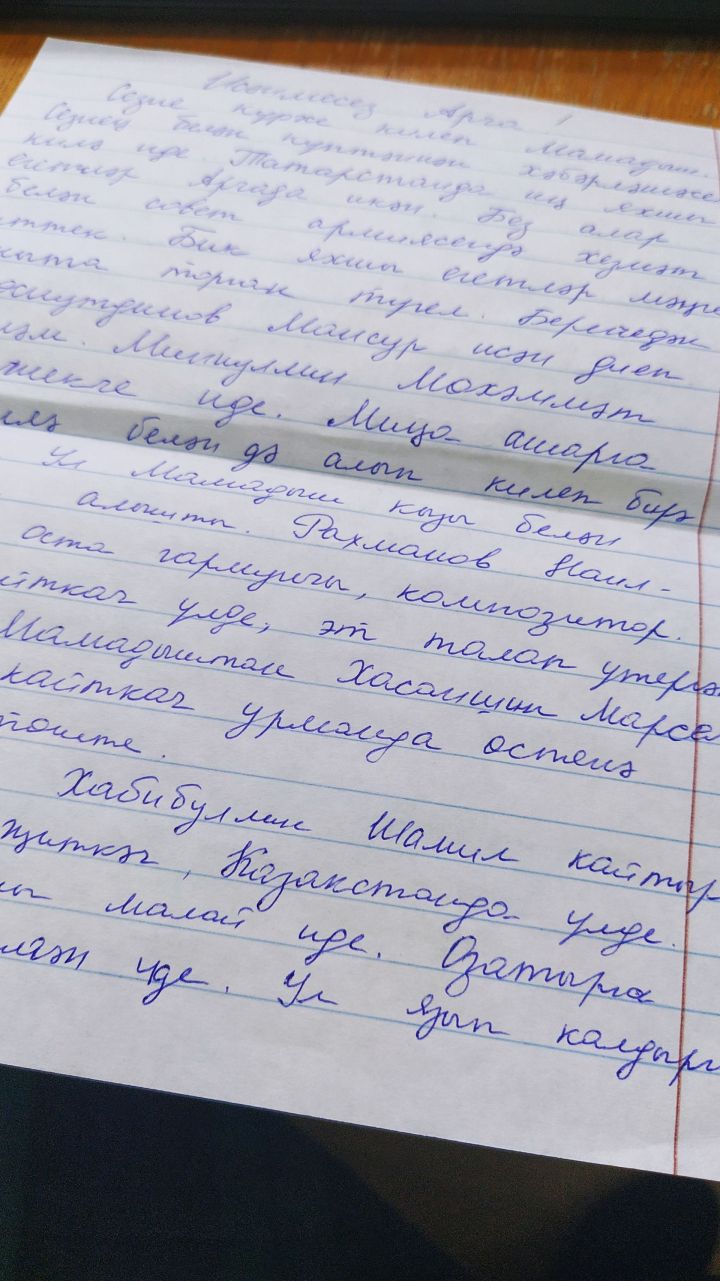 Исәнмесез Арча!
Сезне күрже килеп Мамадыш.
Сезнең белән күптәннән хәбәрләшәсе
килә иде. Татарстанда иң яхшы
егетләр Арчада икән. Без алар
белән совет армиясендә хезмәт
иттек. Бик яхшы егетләр мәңге
онытa торган түгел. Беренчедән
Мансур исән диеп
Миңнуллин Мөхәммәт
иде. Миңа ашарга
белән дә алып килеп бирә
Ул Мамадыш кызы белән
алышты. Рахманов Наил-
оста гармунчы, композитор.
үлде, эт талап үтергән
Мамадыштан Хасаншин Марсель
кайткач урманда өстенә
төште.
Хабибуллин Шамил кайтыр
җиткәч, Казакстанда үлде.
малай иде. Озатырга
иде. Ул язып калдырг